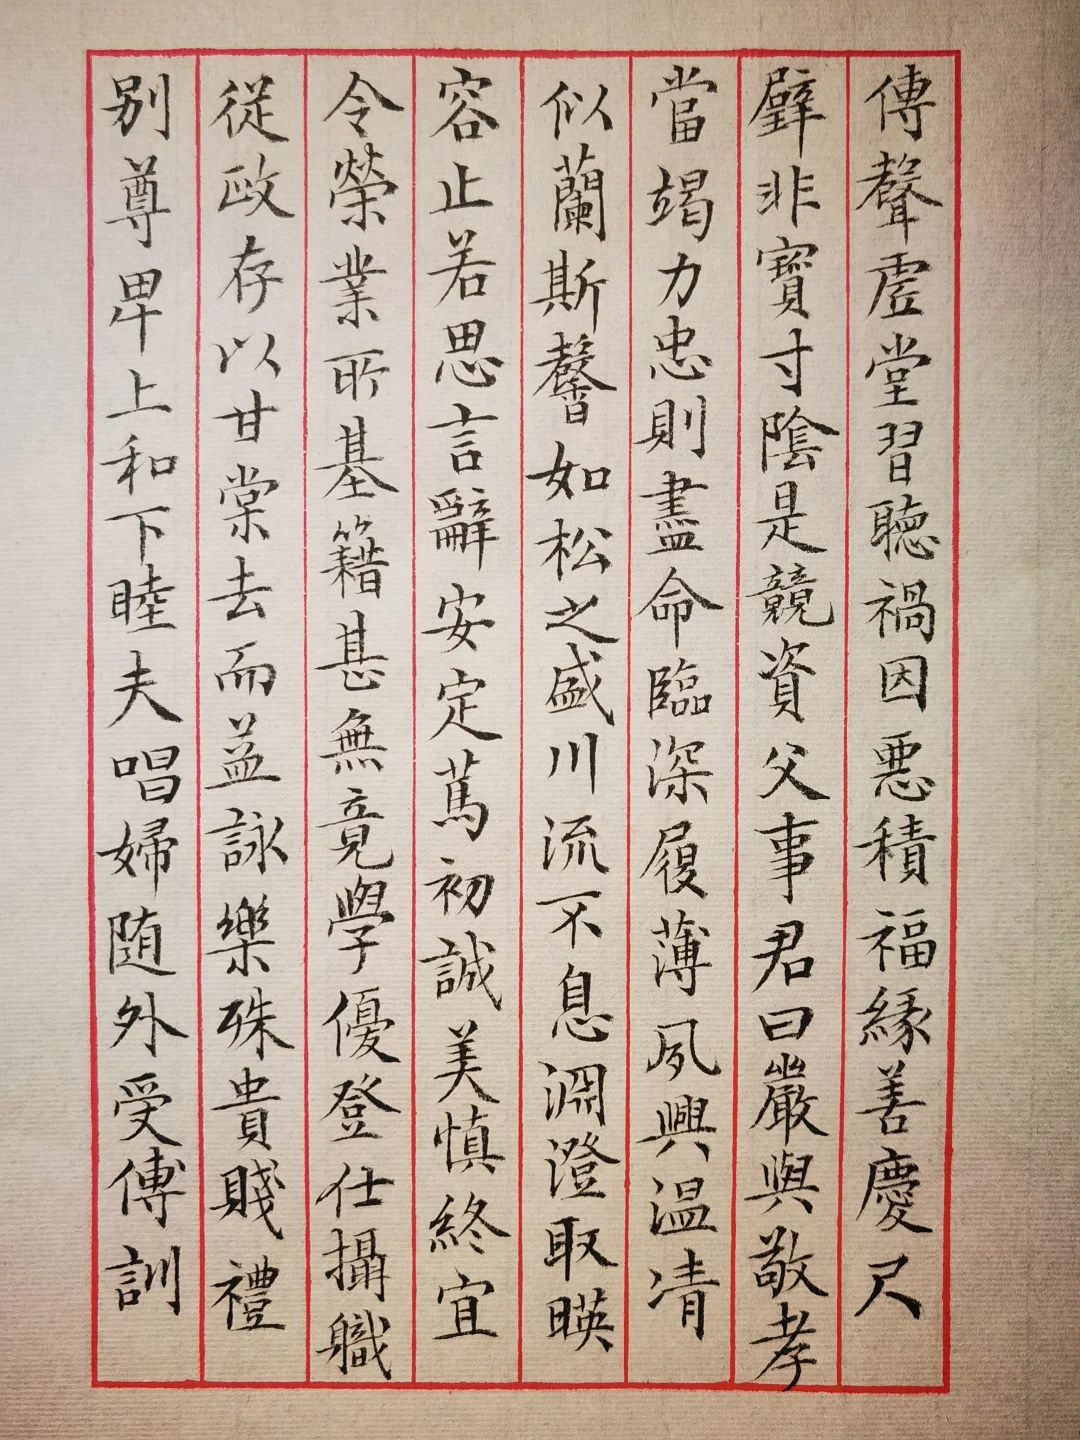 傳聲虛堂習聽禍因惡積福緣善慶尺
璧非寶寸陰是競資父事君曰嚴與敬孝
當竭力忠則盡命臨深履薄夙興温凊
似蘭斯馨如松之盛川流不息淵澄取暎
容止若思言辭安定篤初誠美慎終宜
令榮業所基籍甚無竟學優登仕攝職
從政存以甘棠去而益詠樂殊貴賤禮
别尊卑上和下睦夫唱婦随外受傅訓